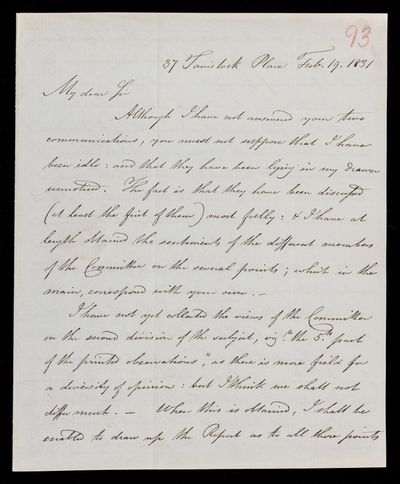 93
37 Tavistock Place Feb. 19. 1831
My dear Sir
Although I have not answered your two
communications, you must not suppose that I have
been idle: and that they have been lying in my drawer
unnoticed. The fact is that they have been discussed
(at least the first of them) most fully: & I have at
length obtained the sentiments of the different members
of the Committee on the several points; which in the
main, correspond with your own. —
I have not yet collected the views of the Committee
on the second division of the subject, viz.t "the 5.th part
of the printed observations", as there is more field for
a diversity of opinion: but I think we shall not
differ much. — When this is obtained, I shall be
enabled to draw up the Report as to all those points